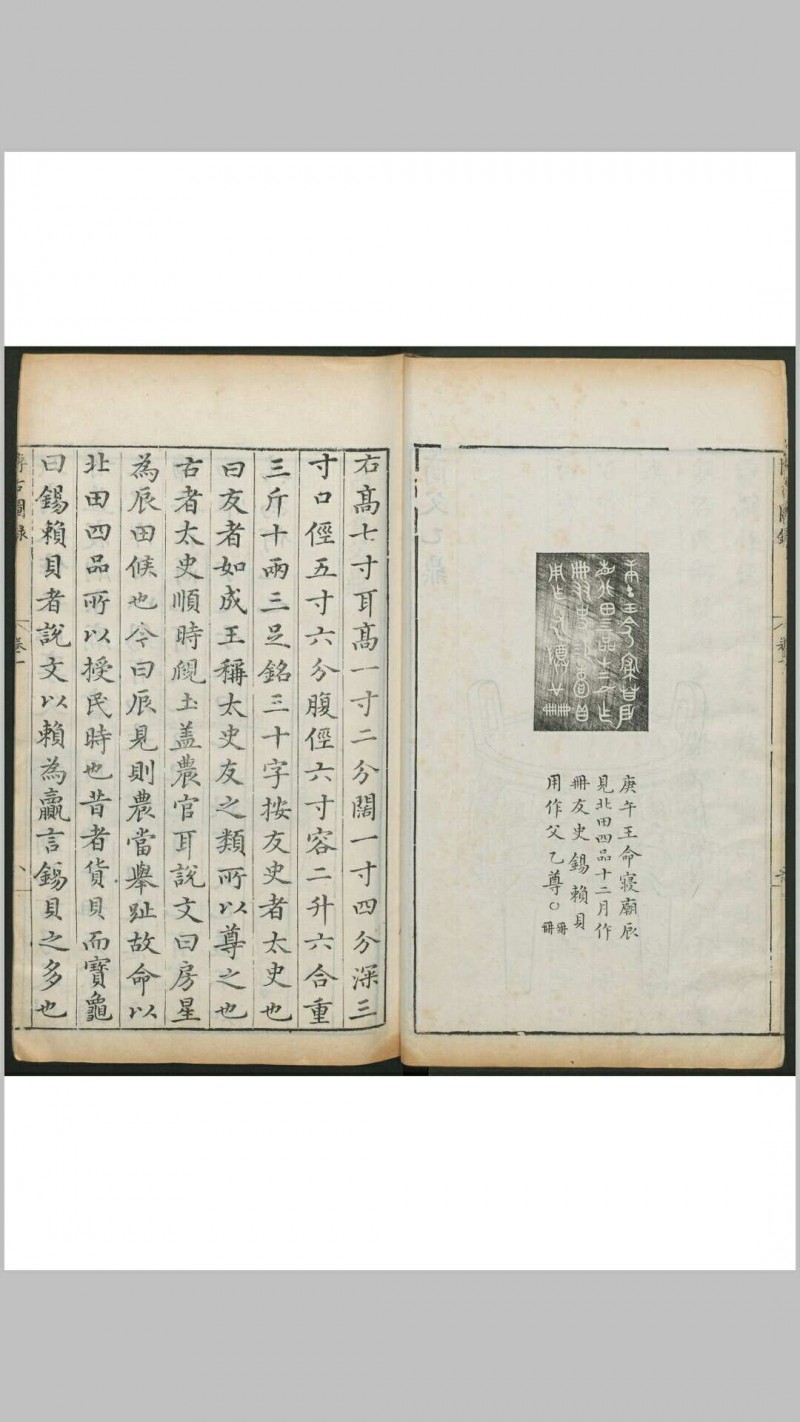 庚午王命寢廟辰
見北田四品十二月作
冊友史錫賴貝
用作父乙尊
冊冊
右高七寸耳高一寸二分闊一寸四分深三
寸口徑五寸六分腹徑六寸容二升六合重
三斤十兩三足銘三十字按友史者太史也
曰友者如成王稱太史友之類所以尊之也
古者太史順時覛土蓋農官耳說文曰房星
為辰田候也今曰辰見則農當舉趾故命以
北田四品所以授民時也昔者貨貝而寶龜
曰錫賴貝者說文以賴為贏言錫貝之多也
博古圖錄
卷一
八